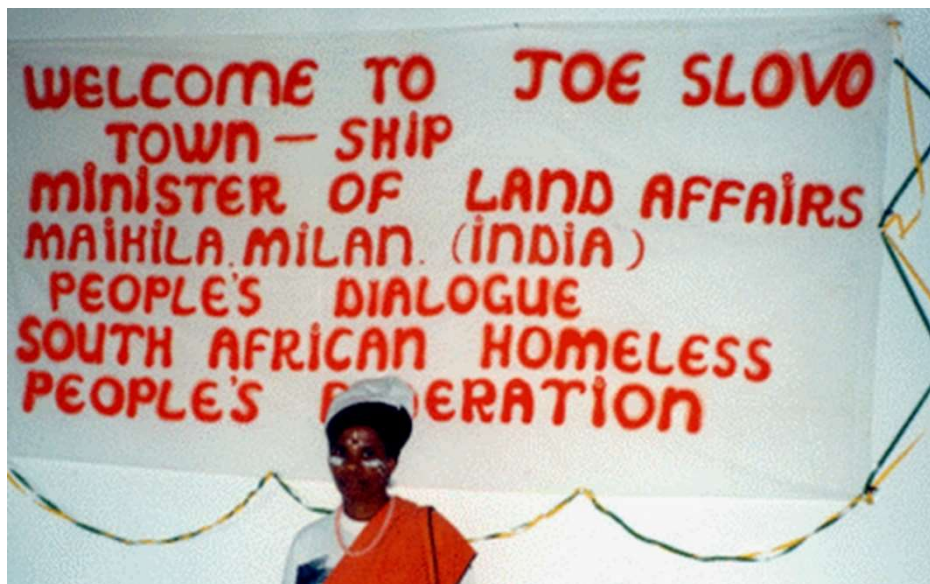 WELCOME TO JOE SLOVO
TOWN - SHIP
MINISTER OF LAND AFFAIRS
MAIHILA. MILAN. (INDIA)
PEOPLE'S DIALOGUE
SOUTH AFRICAN HOMELESS
PEOPLE'S